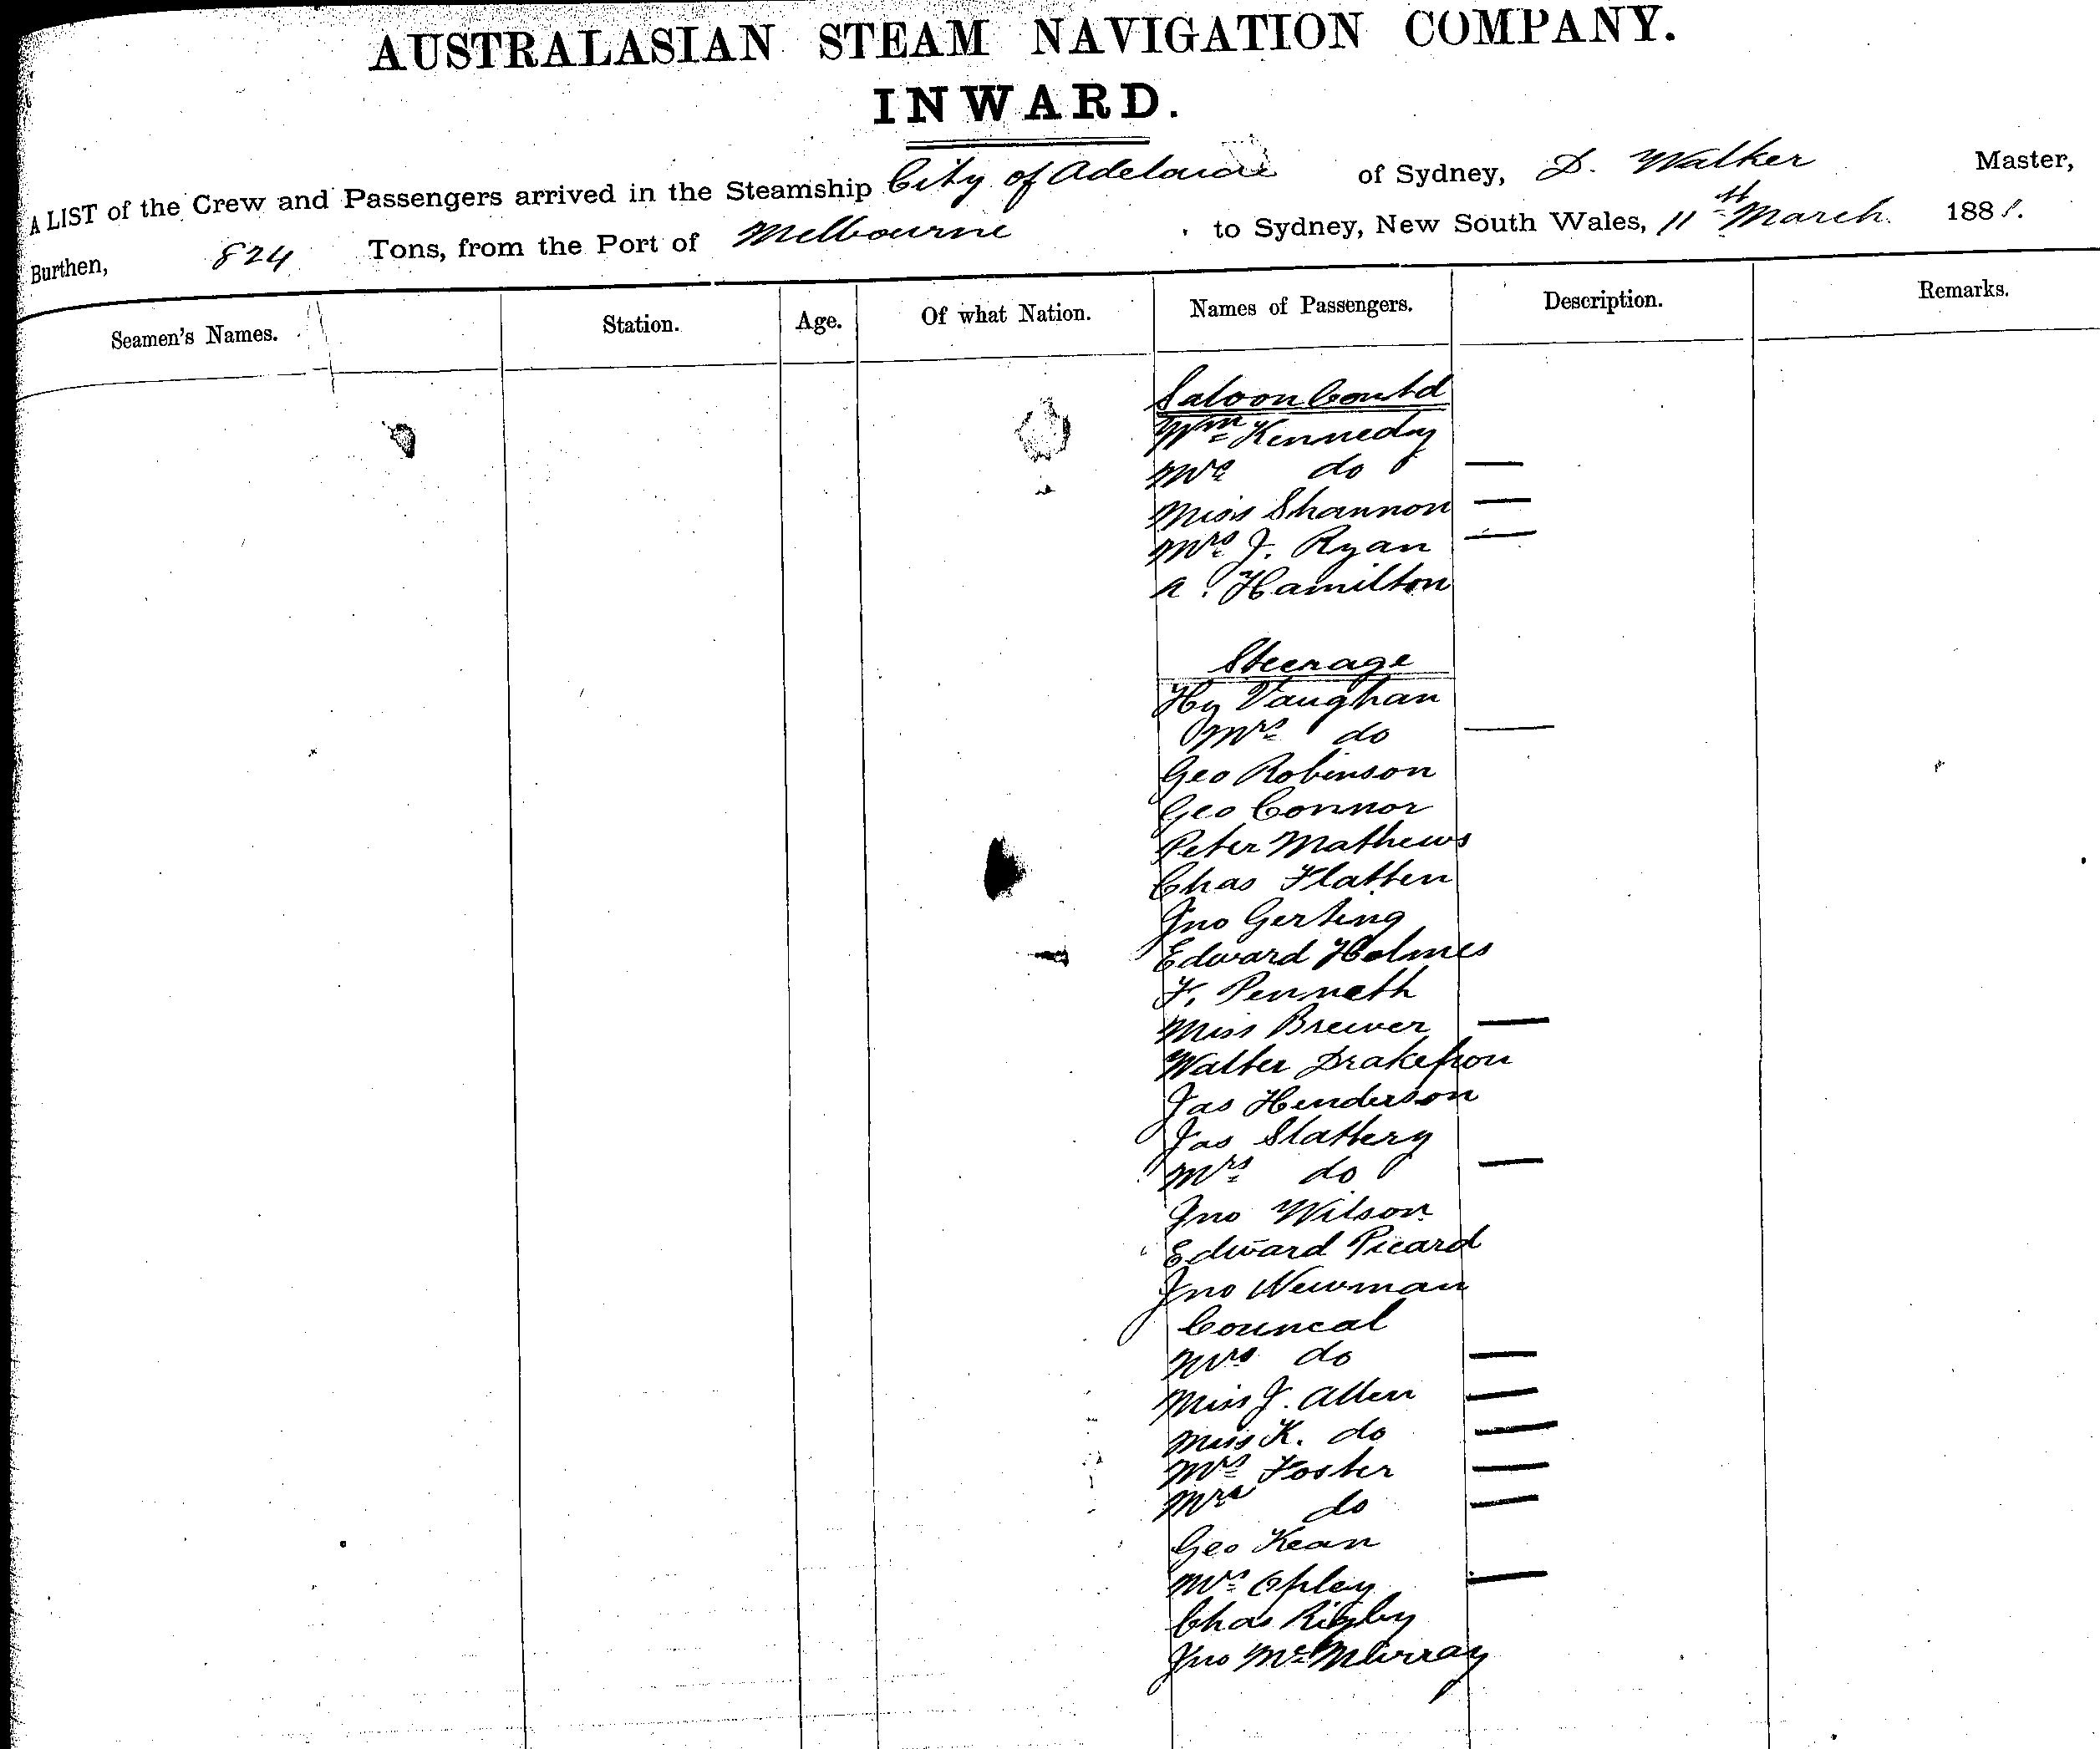 AUSTRALASIAN STEAM NAVIGATION COMPANY.
INWARD.
A LIST of the Crew and Passengers arrived in the Steamship City of Adelaide of Sydney, D. Walker Master,
Burthen, 824 Tons, from the Port of Melbourne to Sydney, New South Wales, 11th March 1881.
Seamen's Names. Station. Age. Of what Nation. Names of Passengers. Description. Remarks.
Saloon Contd
Wm Kennedy
Mrs do —
Miss Shannon —
Mrs J. Ryan —
A. Hamilton
Steerage
Hy Vaughan
Mrs do —
Geo Robinson
Geo Connor
Peter Mathews
Chas Flatten
Jno Gerting
Edward Holmes
F. Penneth
Miss Brewer —
Walter
Jas Henderson
Jas Slattery
Mrs do —
Jno Wilson
Edward Picard
Jno Newman
Councal
Mrs do —
Miss J. Allen —
Miss K. do —
Mrs Foster —
Mrs do —
Geo Kean
Mrs Opley —
Chas Rigby
Jno McMurray